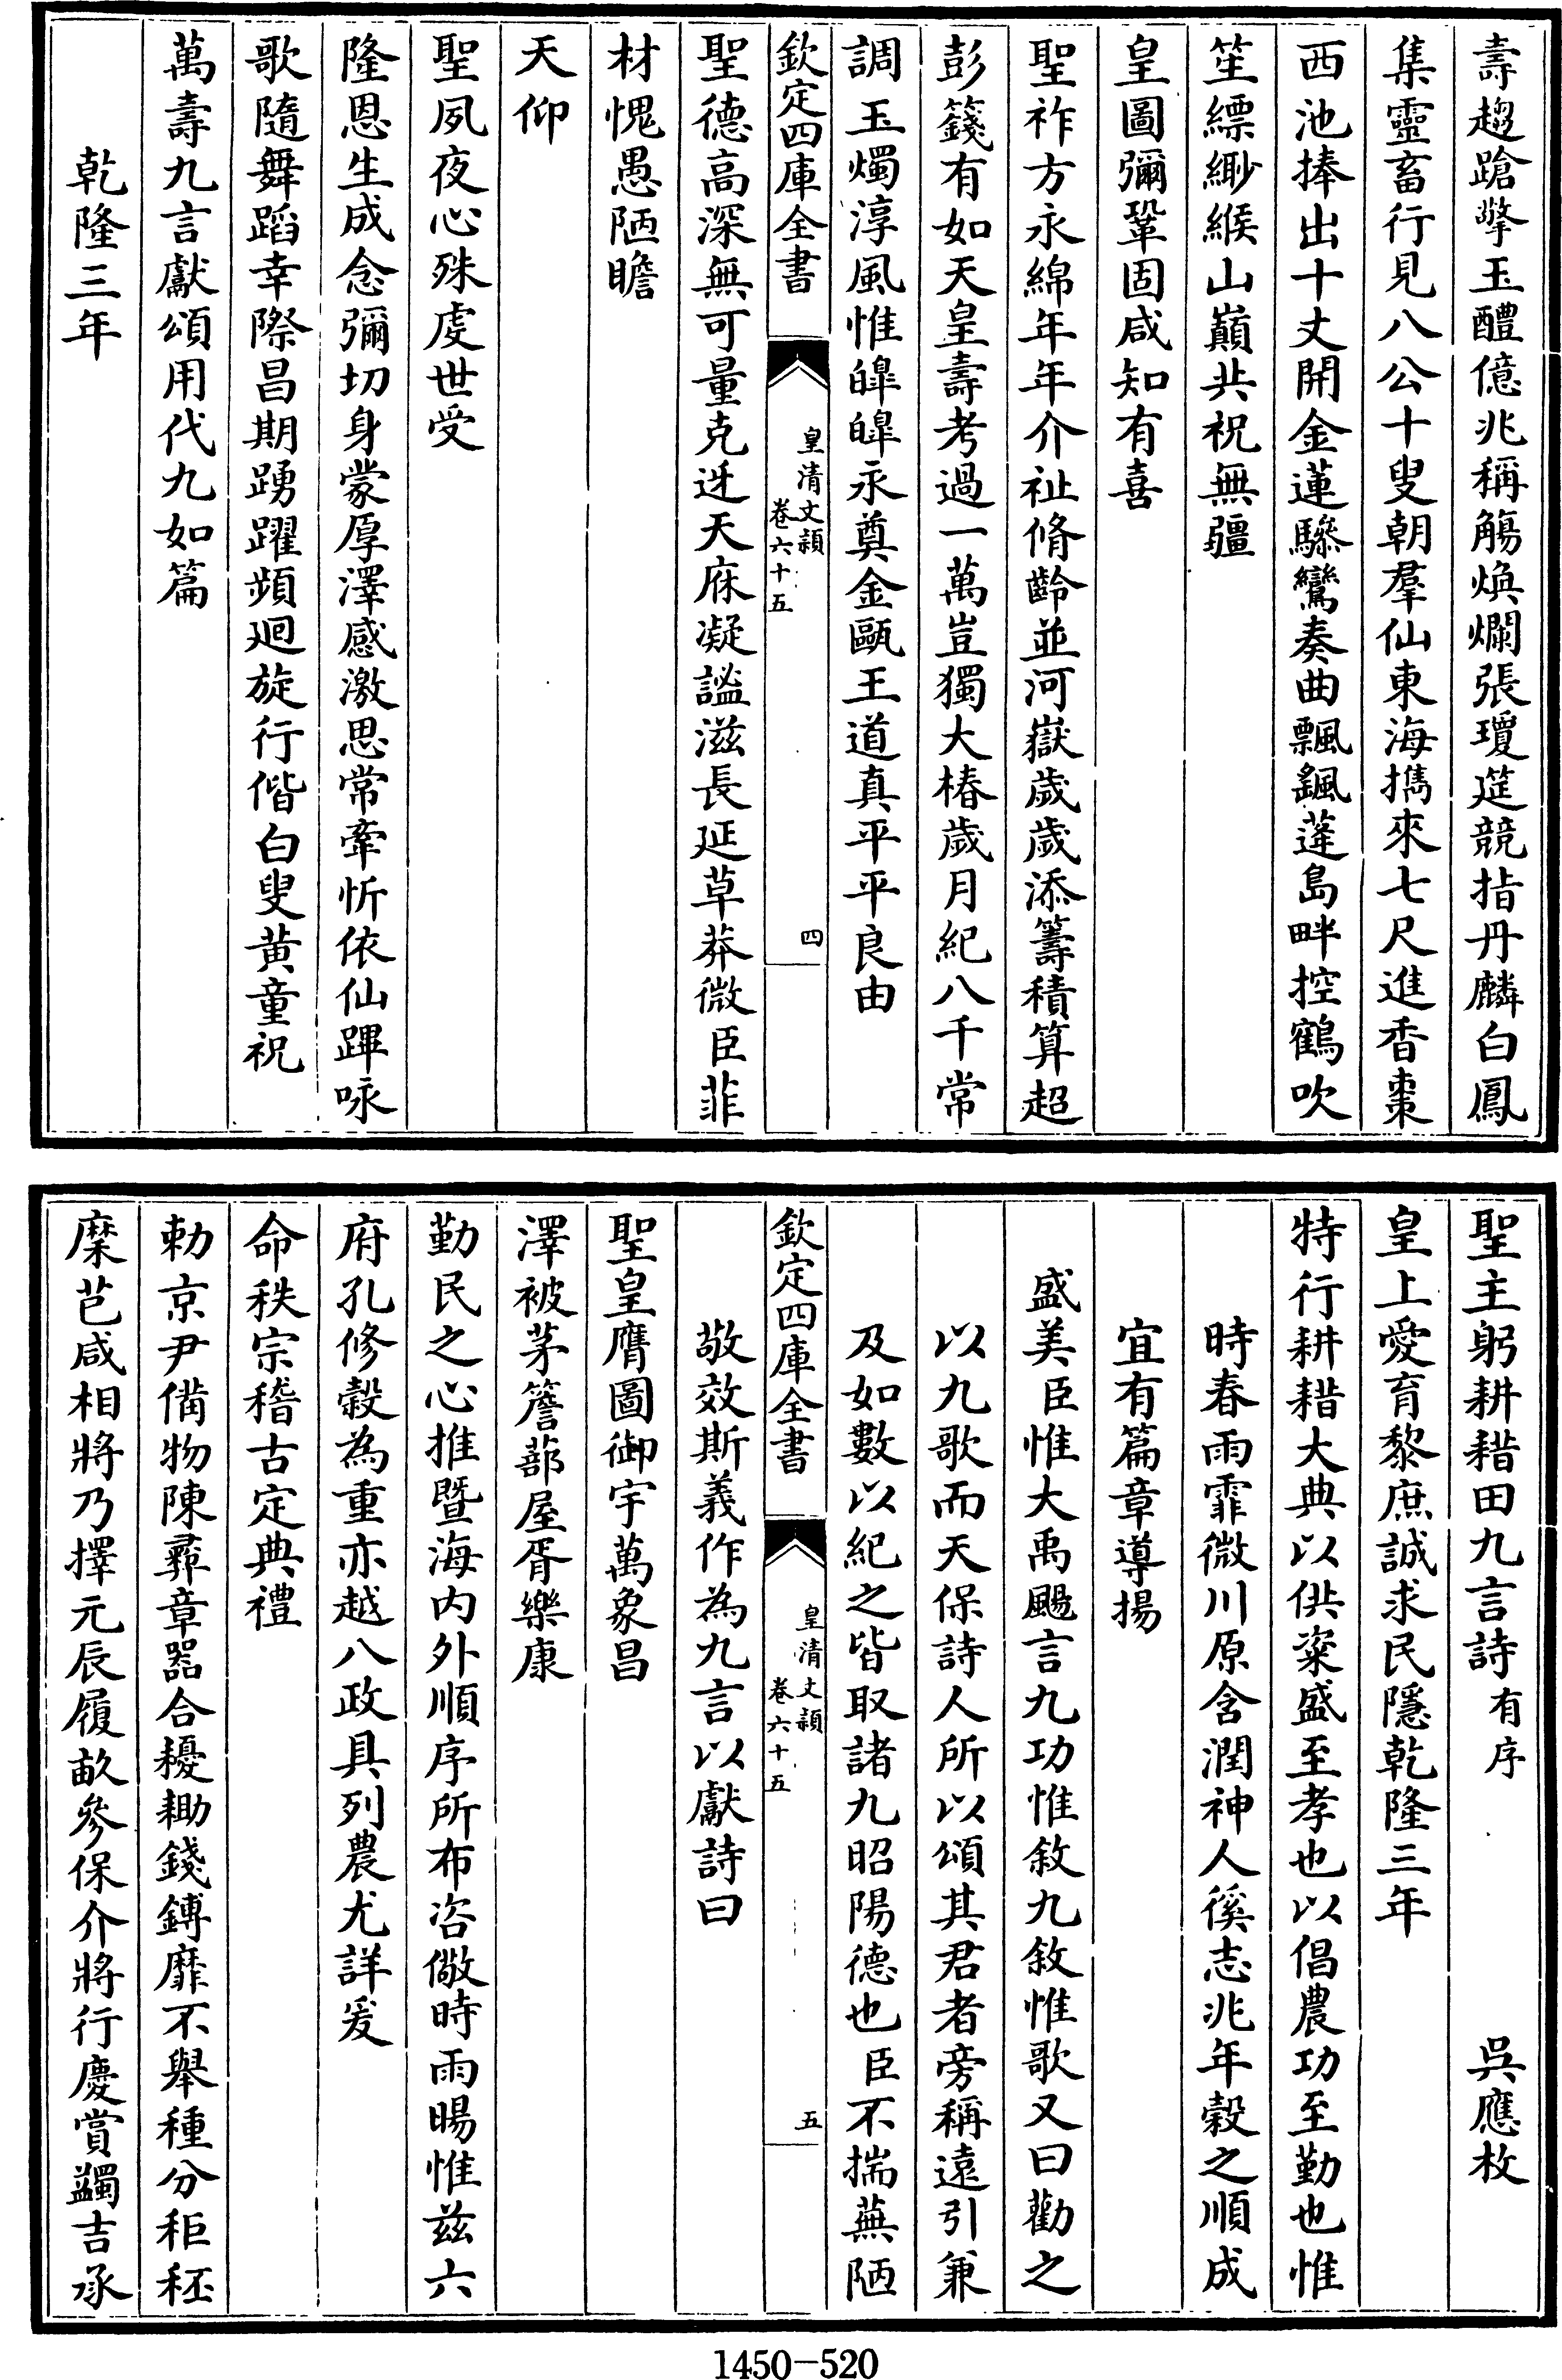 壽趨蹌擎玉醴億兆稱觴煥爛張瓊筵競指丹麟白鳳
集靈畜行見八公十叟朝羣仙東海擕來七尺進香棗
西池捧出十丈開金蓮驂鸞奏曲飄颻蓬島畔控鶴吹
笙縹緲緱山巔共祝無疆
皇圖彌鞏固咸知有喜
聖祚方永綿年年介祉脩齡並河嶽歲歲添籌積算超
彭籛有如天皇壽考過一萬豈獨大椿歲月紀八千常
調玉燭淳風惟皥皥永奠金甌王道真平平良由
欽定四庫全書
皇清文穎
卷六十五
四
聖德高深無可量克迓天庥凝謐滋長延草莽微臣菲
材愧愚陋瞻
天仰
聖夙夜心殊虔世受
隆恩生成念彌切身蒙厚澤感激思常牽忻依仙蹕咏
歌隨舞蹈幸際昌期踴躍頻廻旋行偕白叟黃童祝
萬壽九言獻頌用代九如篇
乾隆三年
聖主躬耕耤田九言詩有序 吳應枚
皇上愛育黎庶誠求民隱乾隆三年
特行耕耤大典以供粢盛至孝也以倡農功至勤也惟
時春雨霏微川原含潤神人徯志兆年穀之順成
宜有篇章導揚
盛美臣惟大禹颺言九功惟敘九敘惟歌又曰勸之
以九歌而天保詩人所以頌其君者旁稱遠引兼
及如數以紀之皆取諸九昭陽德也臣不揣蕪陋
欽定四庫全書
皇清文穎
卷六十五
五
敬效斯義作為九言以獻詩曰
聖皇膺圖御宇萬象昌
澤被茅簷蔀屋胥樂康
勤民之心推暨海內外順序所布咨儆時雨暘惟茲六
府孔修穀為重亦越八政具列農尤詳爰
命秩宗稽古定典禮
勅京尹備物陳彞章器合耰耡錢鎛靡不舉種分秬秠
穈芑咸相將乃擇元辰履畝參保介將行慶賞蠲吉承
1450-520